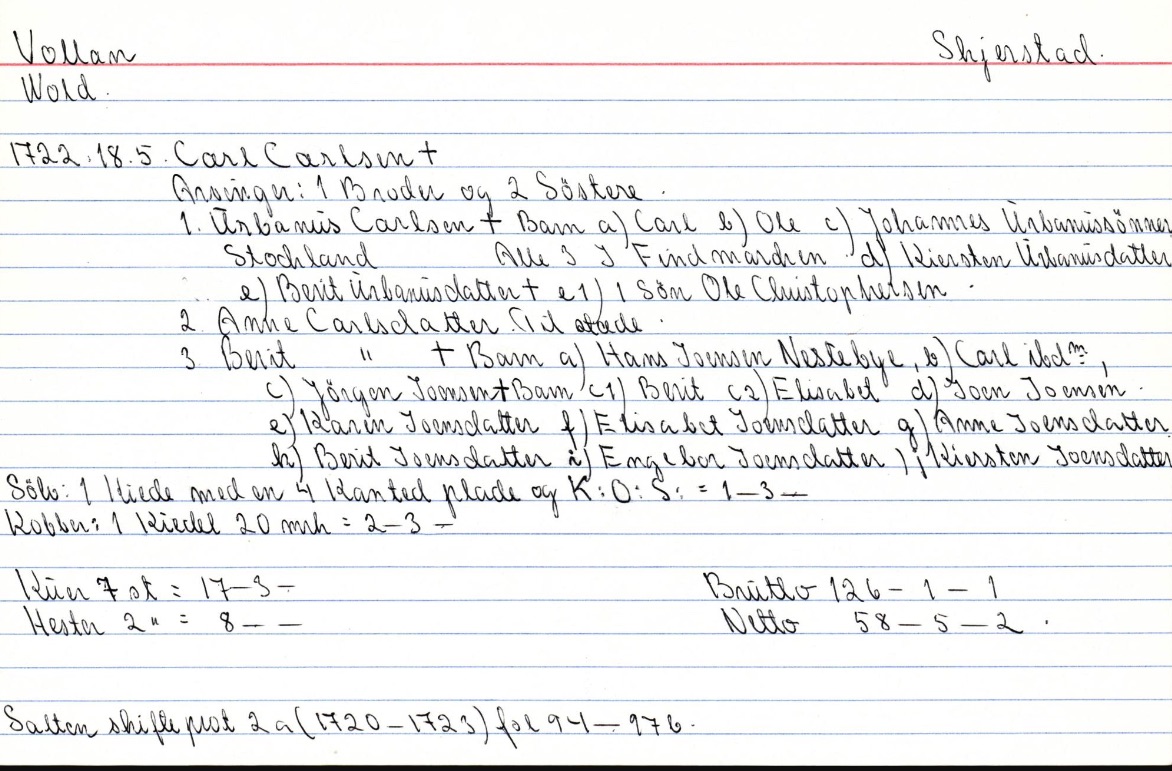 Vollan Skjerstad.
Wold.
1722.18.5. Carl Carlsen +
Arvinger: 1 Broder og 2 Söstere.
1. Urbanus Carlsen + Barn a) Carl b) Ole c) Johannes Urbanussönner
Stochland Alle 3 J Findmarchen. d) Kiersten Urbanusdatter
e) Berit Urbanusdatter + e1) 1 Sön Ole Christophersen.
2. Anne Carlsdatter. Til stæde.
3. Berit " + Barn a) Hans Joensen Nestebye, b) Carl ibdm,
c) Jörgen Joensen + Barn c1) Berit c2) Elisabet d) Joen Joensen.
e) Karen Joensdatter f) Elisabet Joensdatter g) Anne Joensdatter.
h) Berit Joensdatter i) Engebor Joensdatter j) Kiersten Joensdatter
Sölv: 1 Kiede med en 4 Kanted plade og K:O:S: = 1-3-
Kobber: 1 Kiedel 20 mrk = 2-3-
Küer 7 st = 17-3- Brütto 126-1-1
Hester 2 " = 8-- Netto 58-5-2.
Salten skifteprot 2a (1720-1723) fol 94-